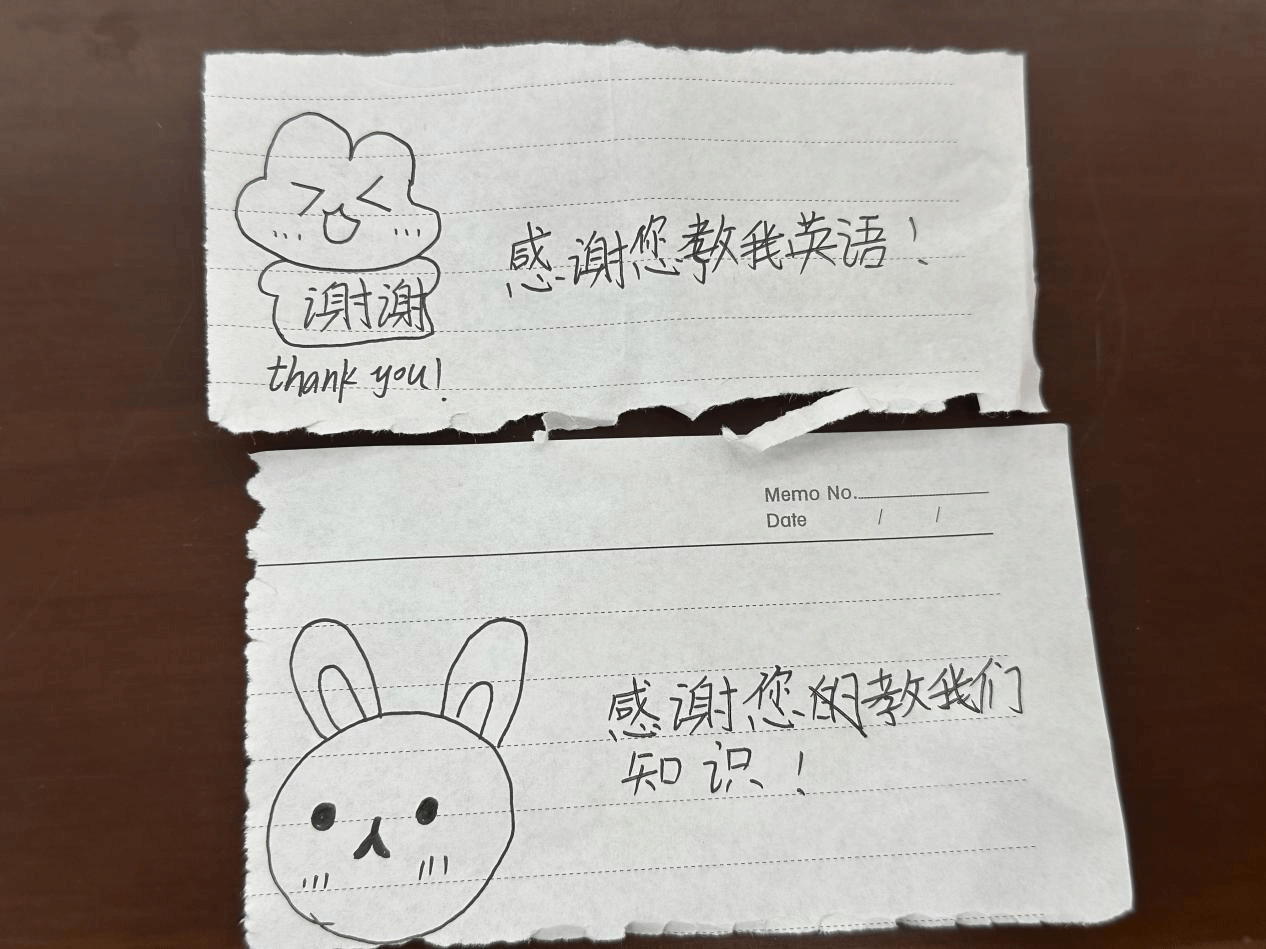 感谢您教我英语！
谢谢
thank you!
Memo No.
Date / /
感谢您教我们
知识！